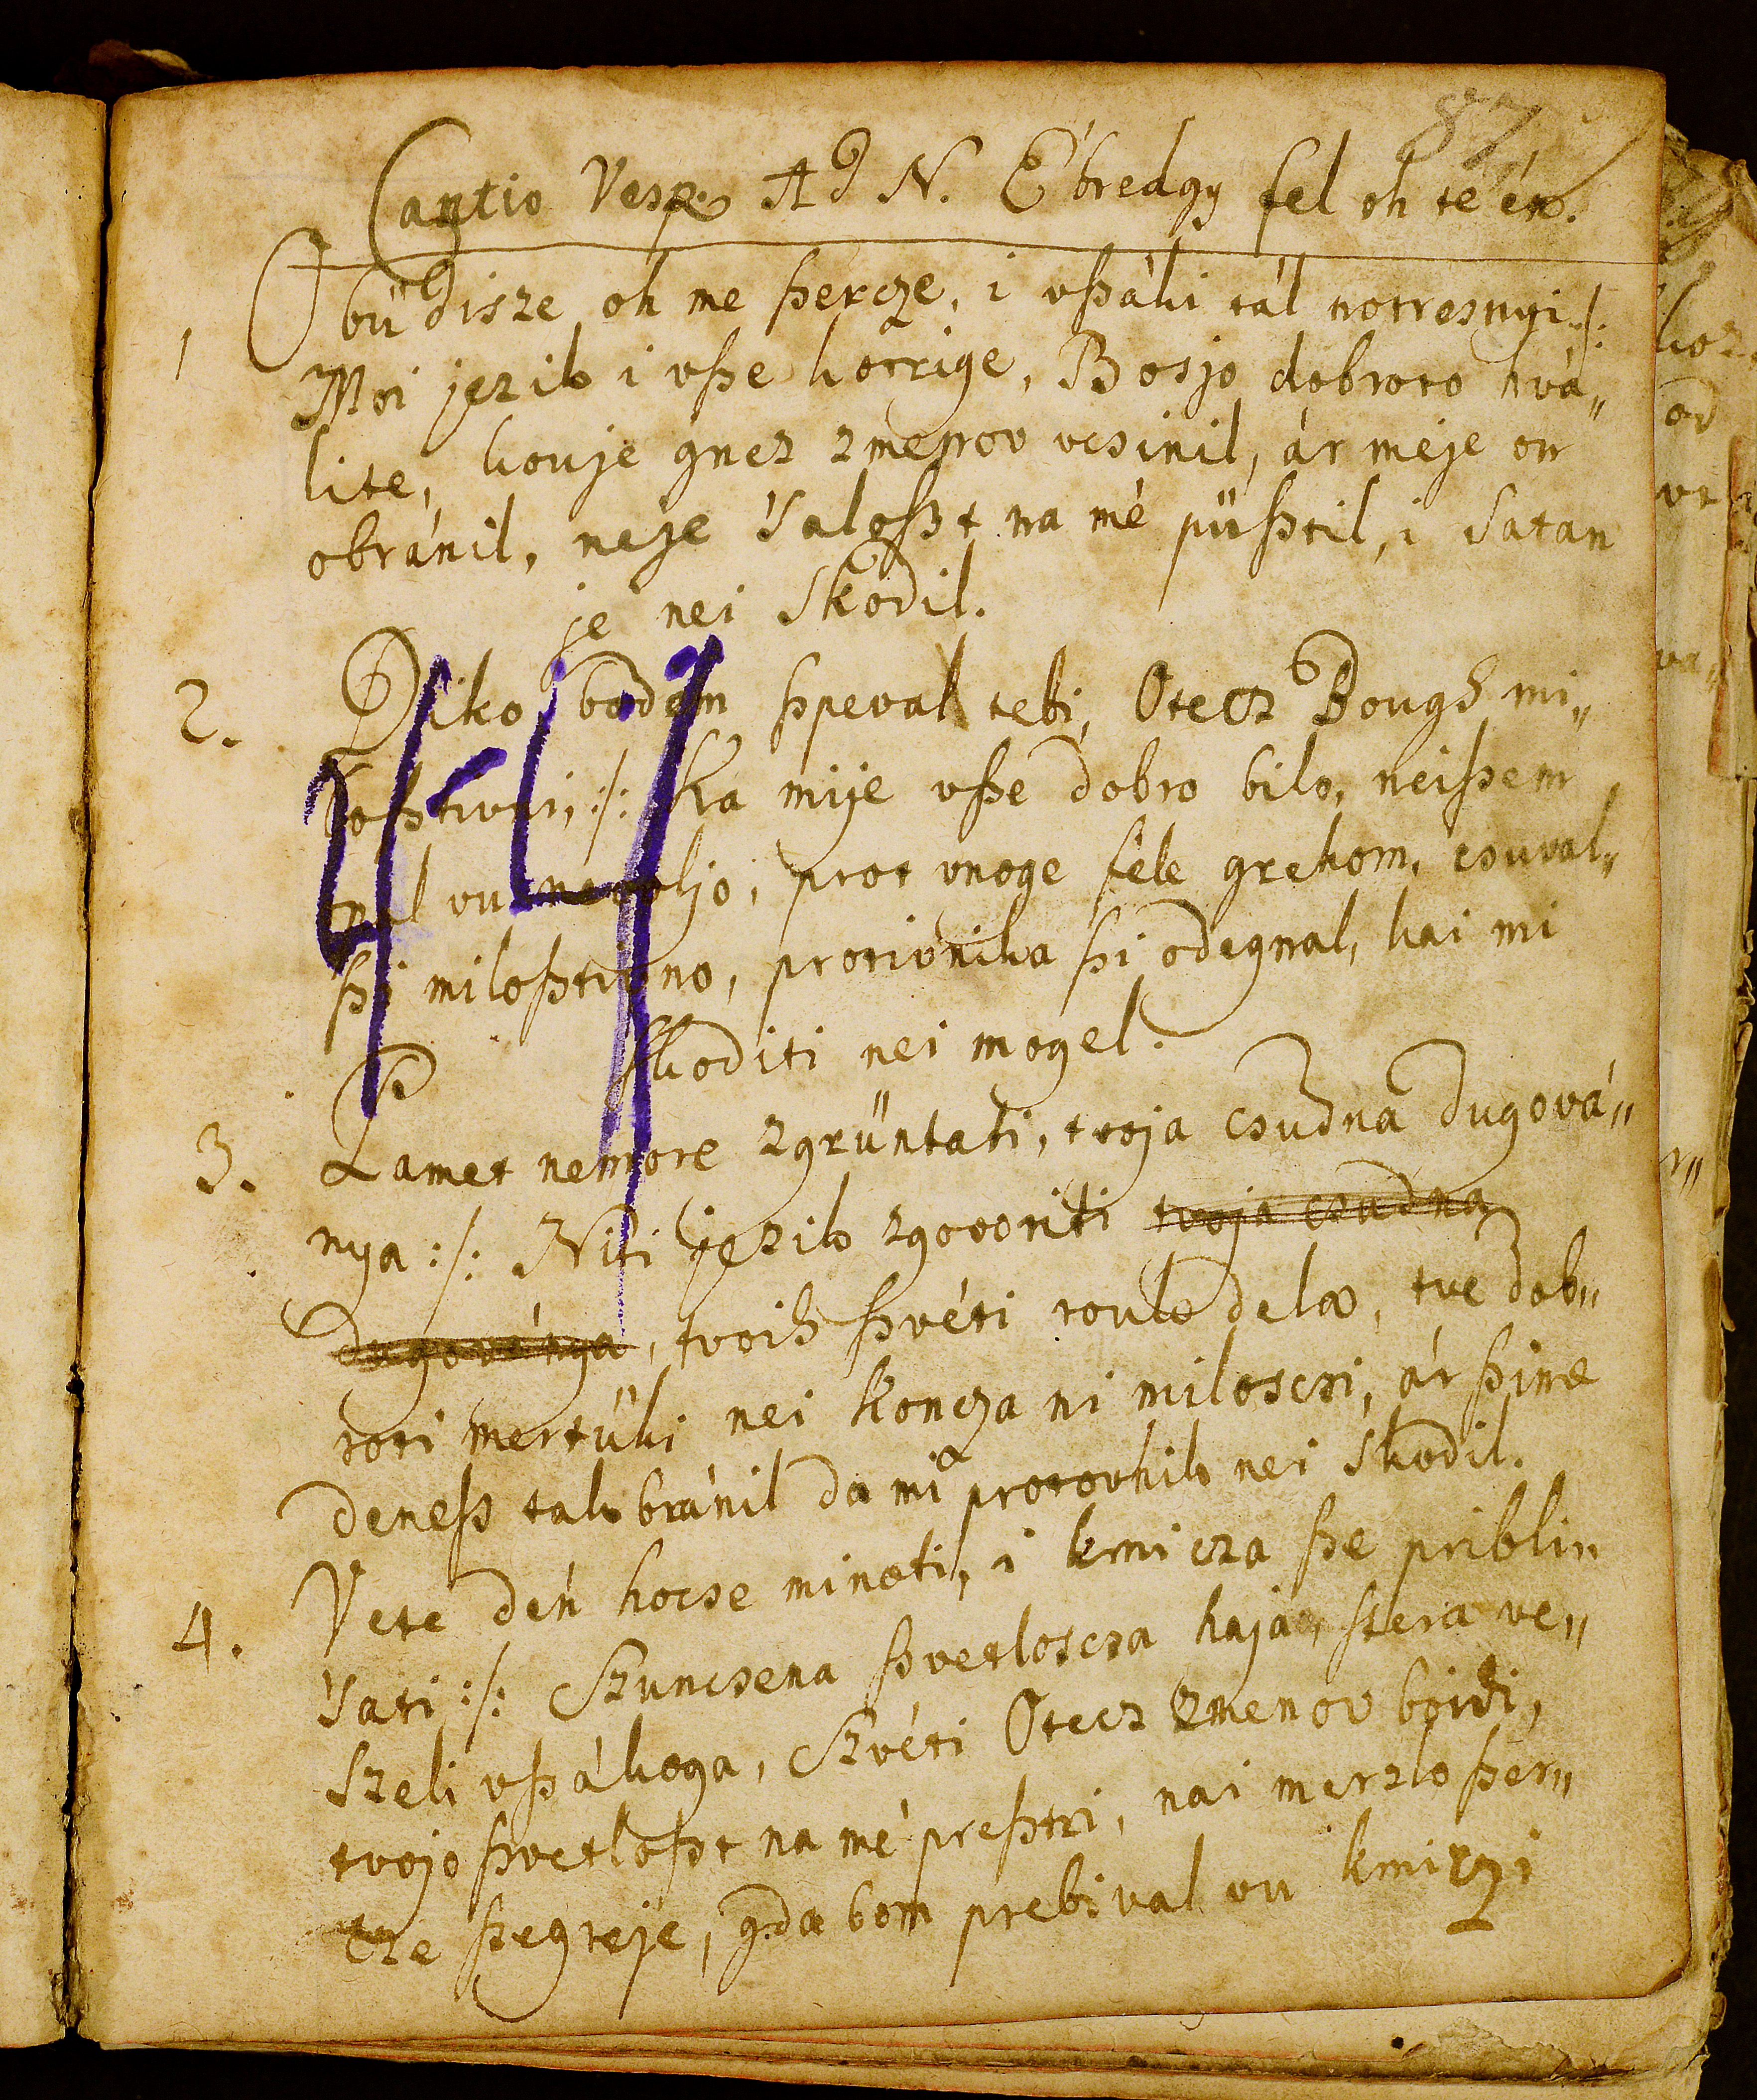 87
Cantio Vesp. Ad N. Ébredgy fel oh te én.
1 Obüdisze oh me ßercze, i vßáki tál notresnyi :/:
Moi jezik i vße kotrige, Bosjo dobroto hvá„
lite, kouje gnes zmenov vcsinil, ár meje on
obránil, neje 'saloßt na mé püßtil, i Satan
je nei skodil.
2. Diko bodem ßpeval tebi, Otecz Bough mi„
loßtivni, :/: Ka mije vße dobro bilo, neißem
opal vu nevoljo, prot vnoge féle grehom, csuval„
ßi miloßtivno, protivnika ßi odegnal, kai mi
skoditi nei mogel.
3. Pamet nemore zgrüntati, tvoja csudna dugová„
nya :/: Niti jezik zgovoriti tvoja csudna
dugoványa, tvoih ßvéti toulo delo, tve dob„
roti mertüki nei koncza ni miloscsi, ár ßime
deneß tak bránil da mi protovnik nei skodil.
4. Vete dén hocse minoti, i kmicza ße pribli„
'sati :/: Szuncsena ßvetloscsa haja, ßtera ve„
szeli vßákoga, Szvéti Otecz zmenov boidi,
tvojo ßvetloßt na mé preßtri, nai merzlo ßer„
cze ßegreje, gda bom prebival vu kmiczi
44